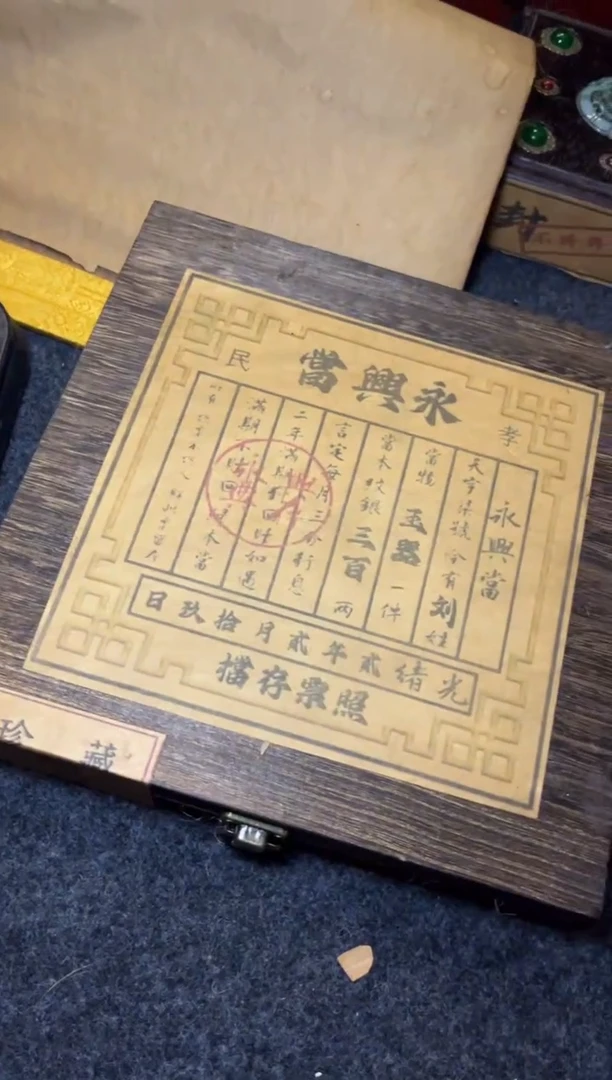 永興當
孝
民
永興當
天字柒號今有刘姓
當物玉器一件
當本紋銀三百兩
言定每月三分行息
二年為期
滿期不贖回
光緒貳年貳月拾玖日
照票存檔
珍藏
封